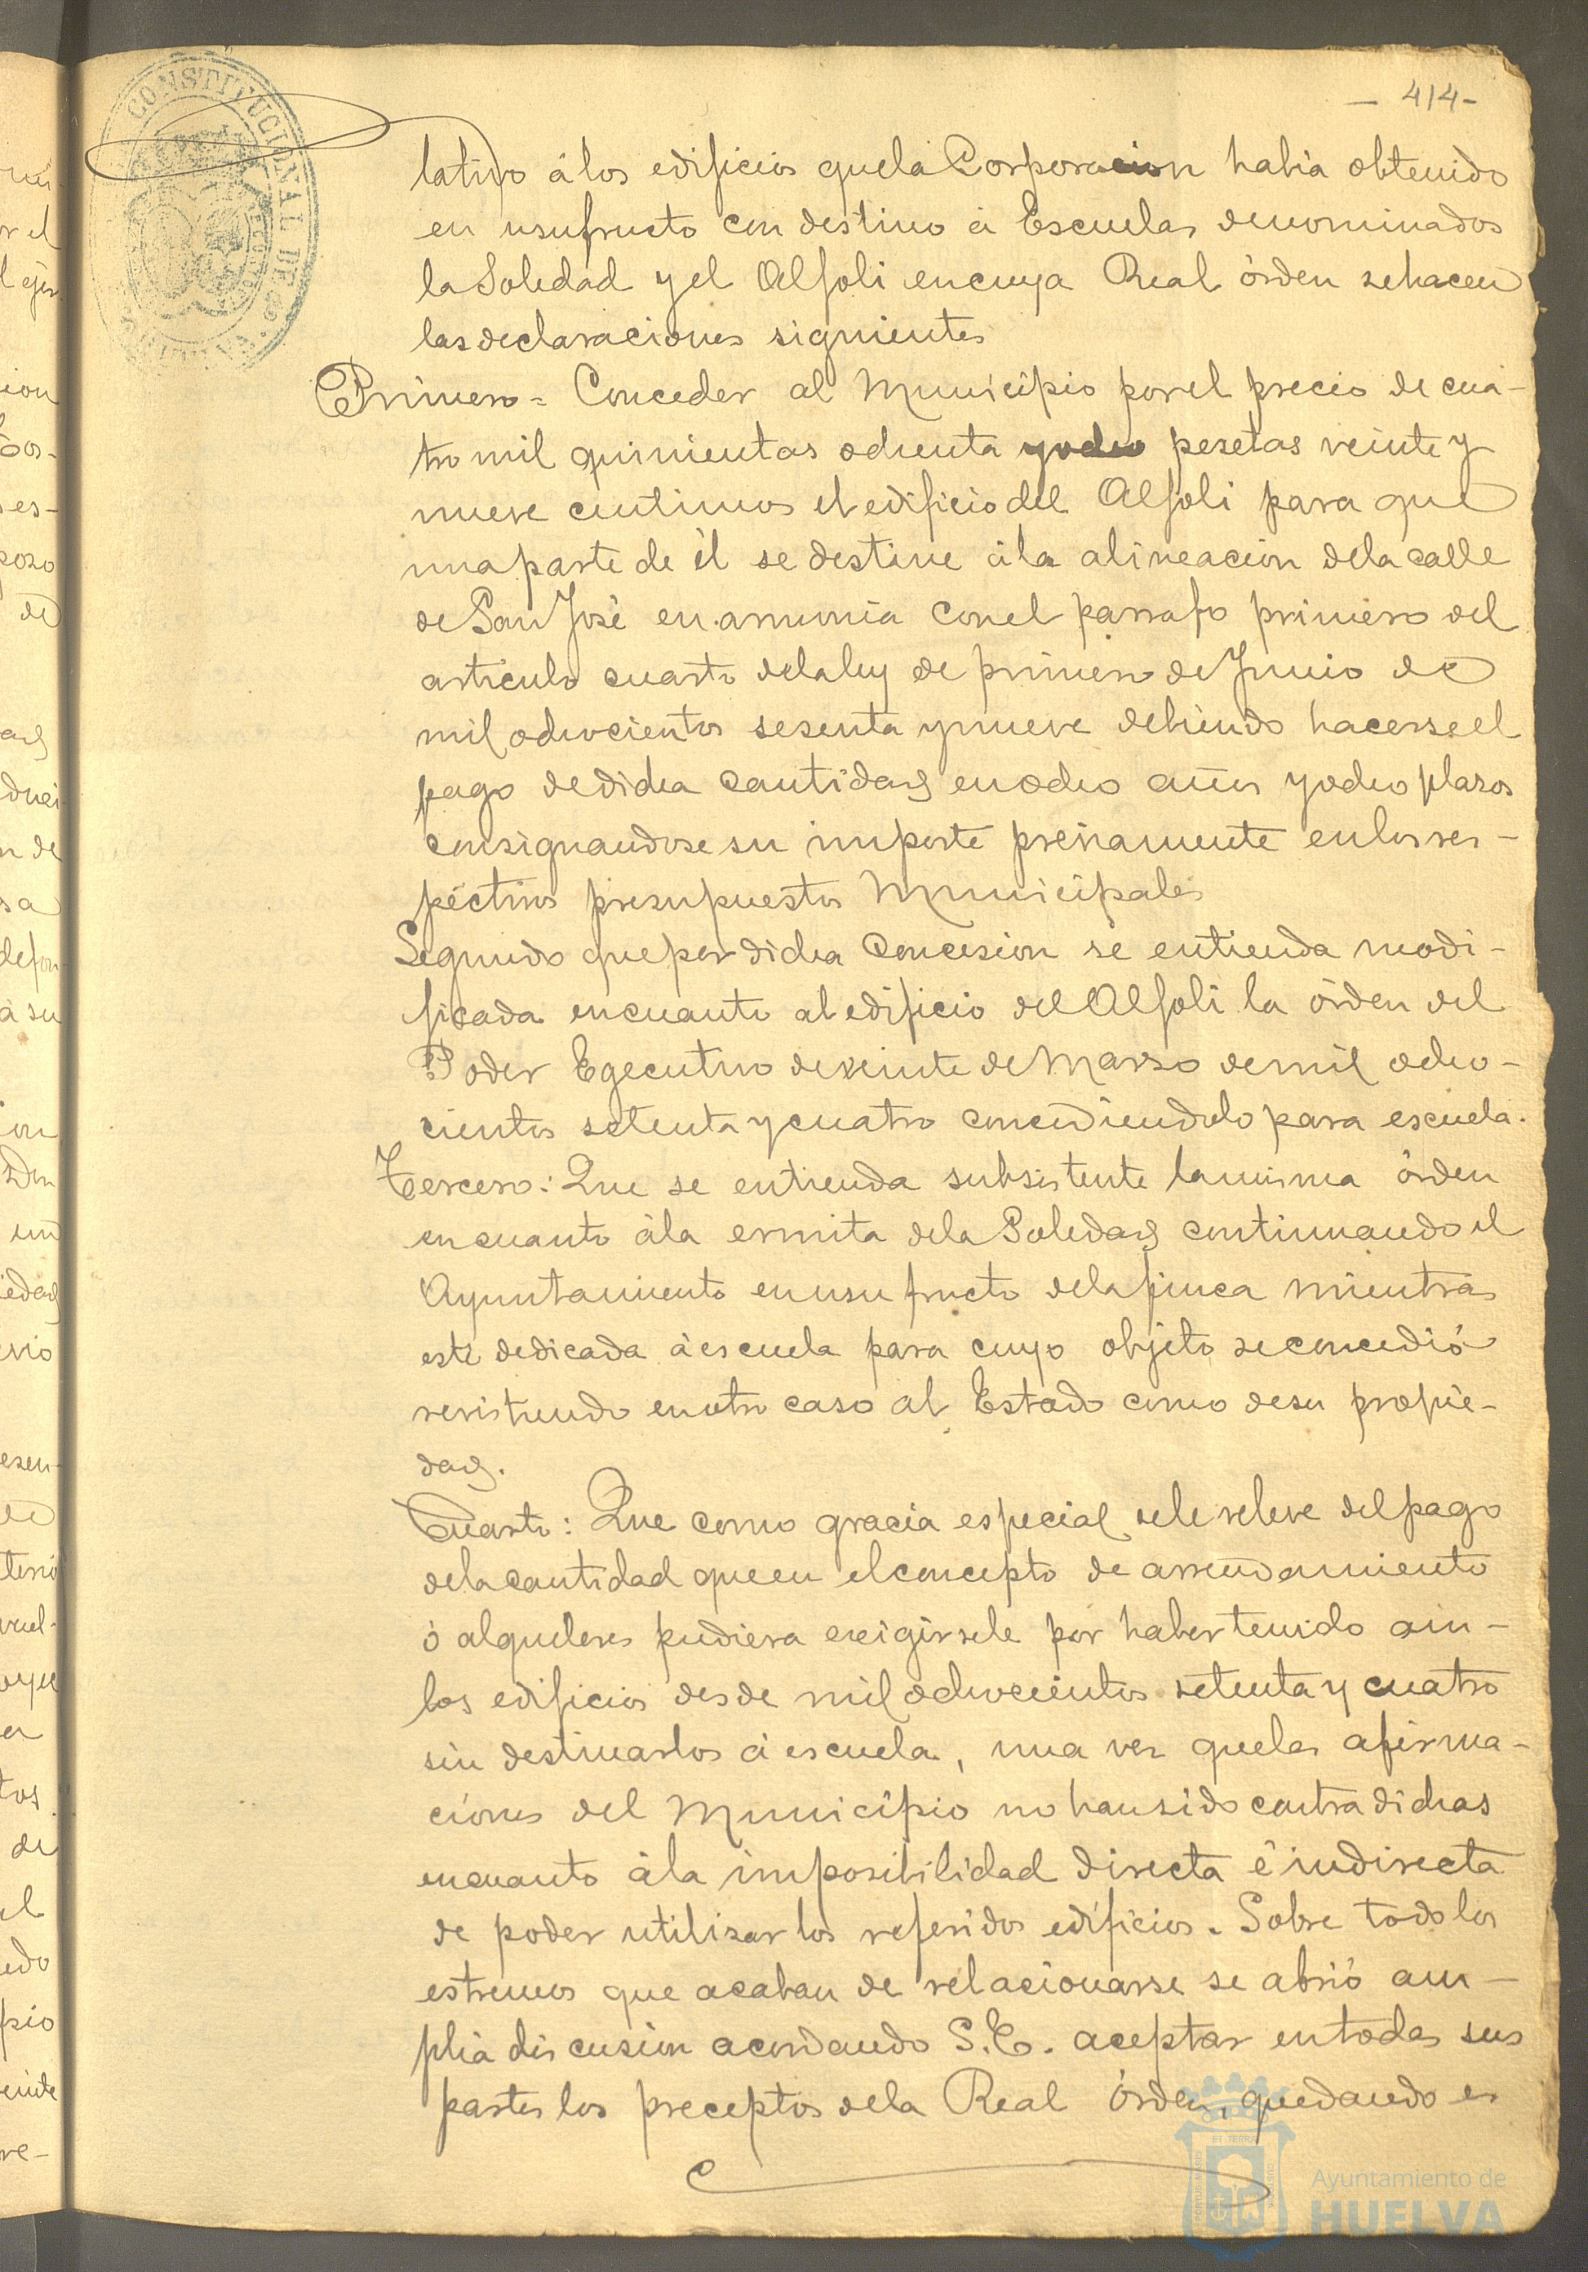 - 414 -
CONSTITUCIONAL DE
lativo á los edificios que la Corporacion habia obtenido
en usufructo con destino á Escuelas denominados
la Soledad y el Alfoli en cuya Real órden se hacen
las declaraciones siguientes
Primero = Conceder al Municipio por el precio de cua-
tro mil quinientas ochenta y ocho pesetas veinte y
nueve centimos el edificio del Alfoli para que
una parte de él se destine á la alineacion de la calle
de San José en armonia con el parrafo primero del
articulo cuarto de la ley de primero de Junio de
mil ochocientos sesenta y nueve debiendo hacerse el
pago de dicha cantidad en ocho años y ocho plazos
consignandose su importe preriamente en los res-
pectivos presupuestos Municipales
Segundo que por dicha Concesion se entienda modi-
ficada en cuanto al edificio del Alfoli la órden del
Poder Egecutivo de veinte de Marzo de mil ocho-
cientos setenta y cuatro concediendolo para escuela.
Tercero: Que se entienda subsistente la misma órden
en cuanto á la ermita de la Soledad continuando el
Ayuntamiento en usufructo de la finca mientras
esté dedicada á escuela para cuyo objeto se concedió
revirtiendo en otro caso al Estado como de su propie-
dad.
Cuarto: Que como gracia especial se le releve del pago
de la cantidad que en el concepto de arrendamiento
ó alquileres pudiera exigirsele por haber tenido am-
bos edificios desde mil ochocientos setenta y cuatro
sin destinarlos á escuela, una vez que las afirma-
ciones del Municipio no han sido contradichas
en cuanto á la imposibilidad directa é indirecta
de poder utilizar los referidos edificios. Sobre todo los
estremos que acaban de relacionarse se abrió am-
plia discusion acordando S.E. aceptar en todas sus
partes los preceptos de la Real órden, quedando es
Ayuntamiento de
HUELVA